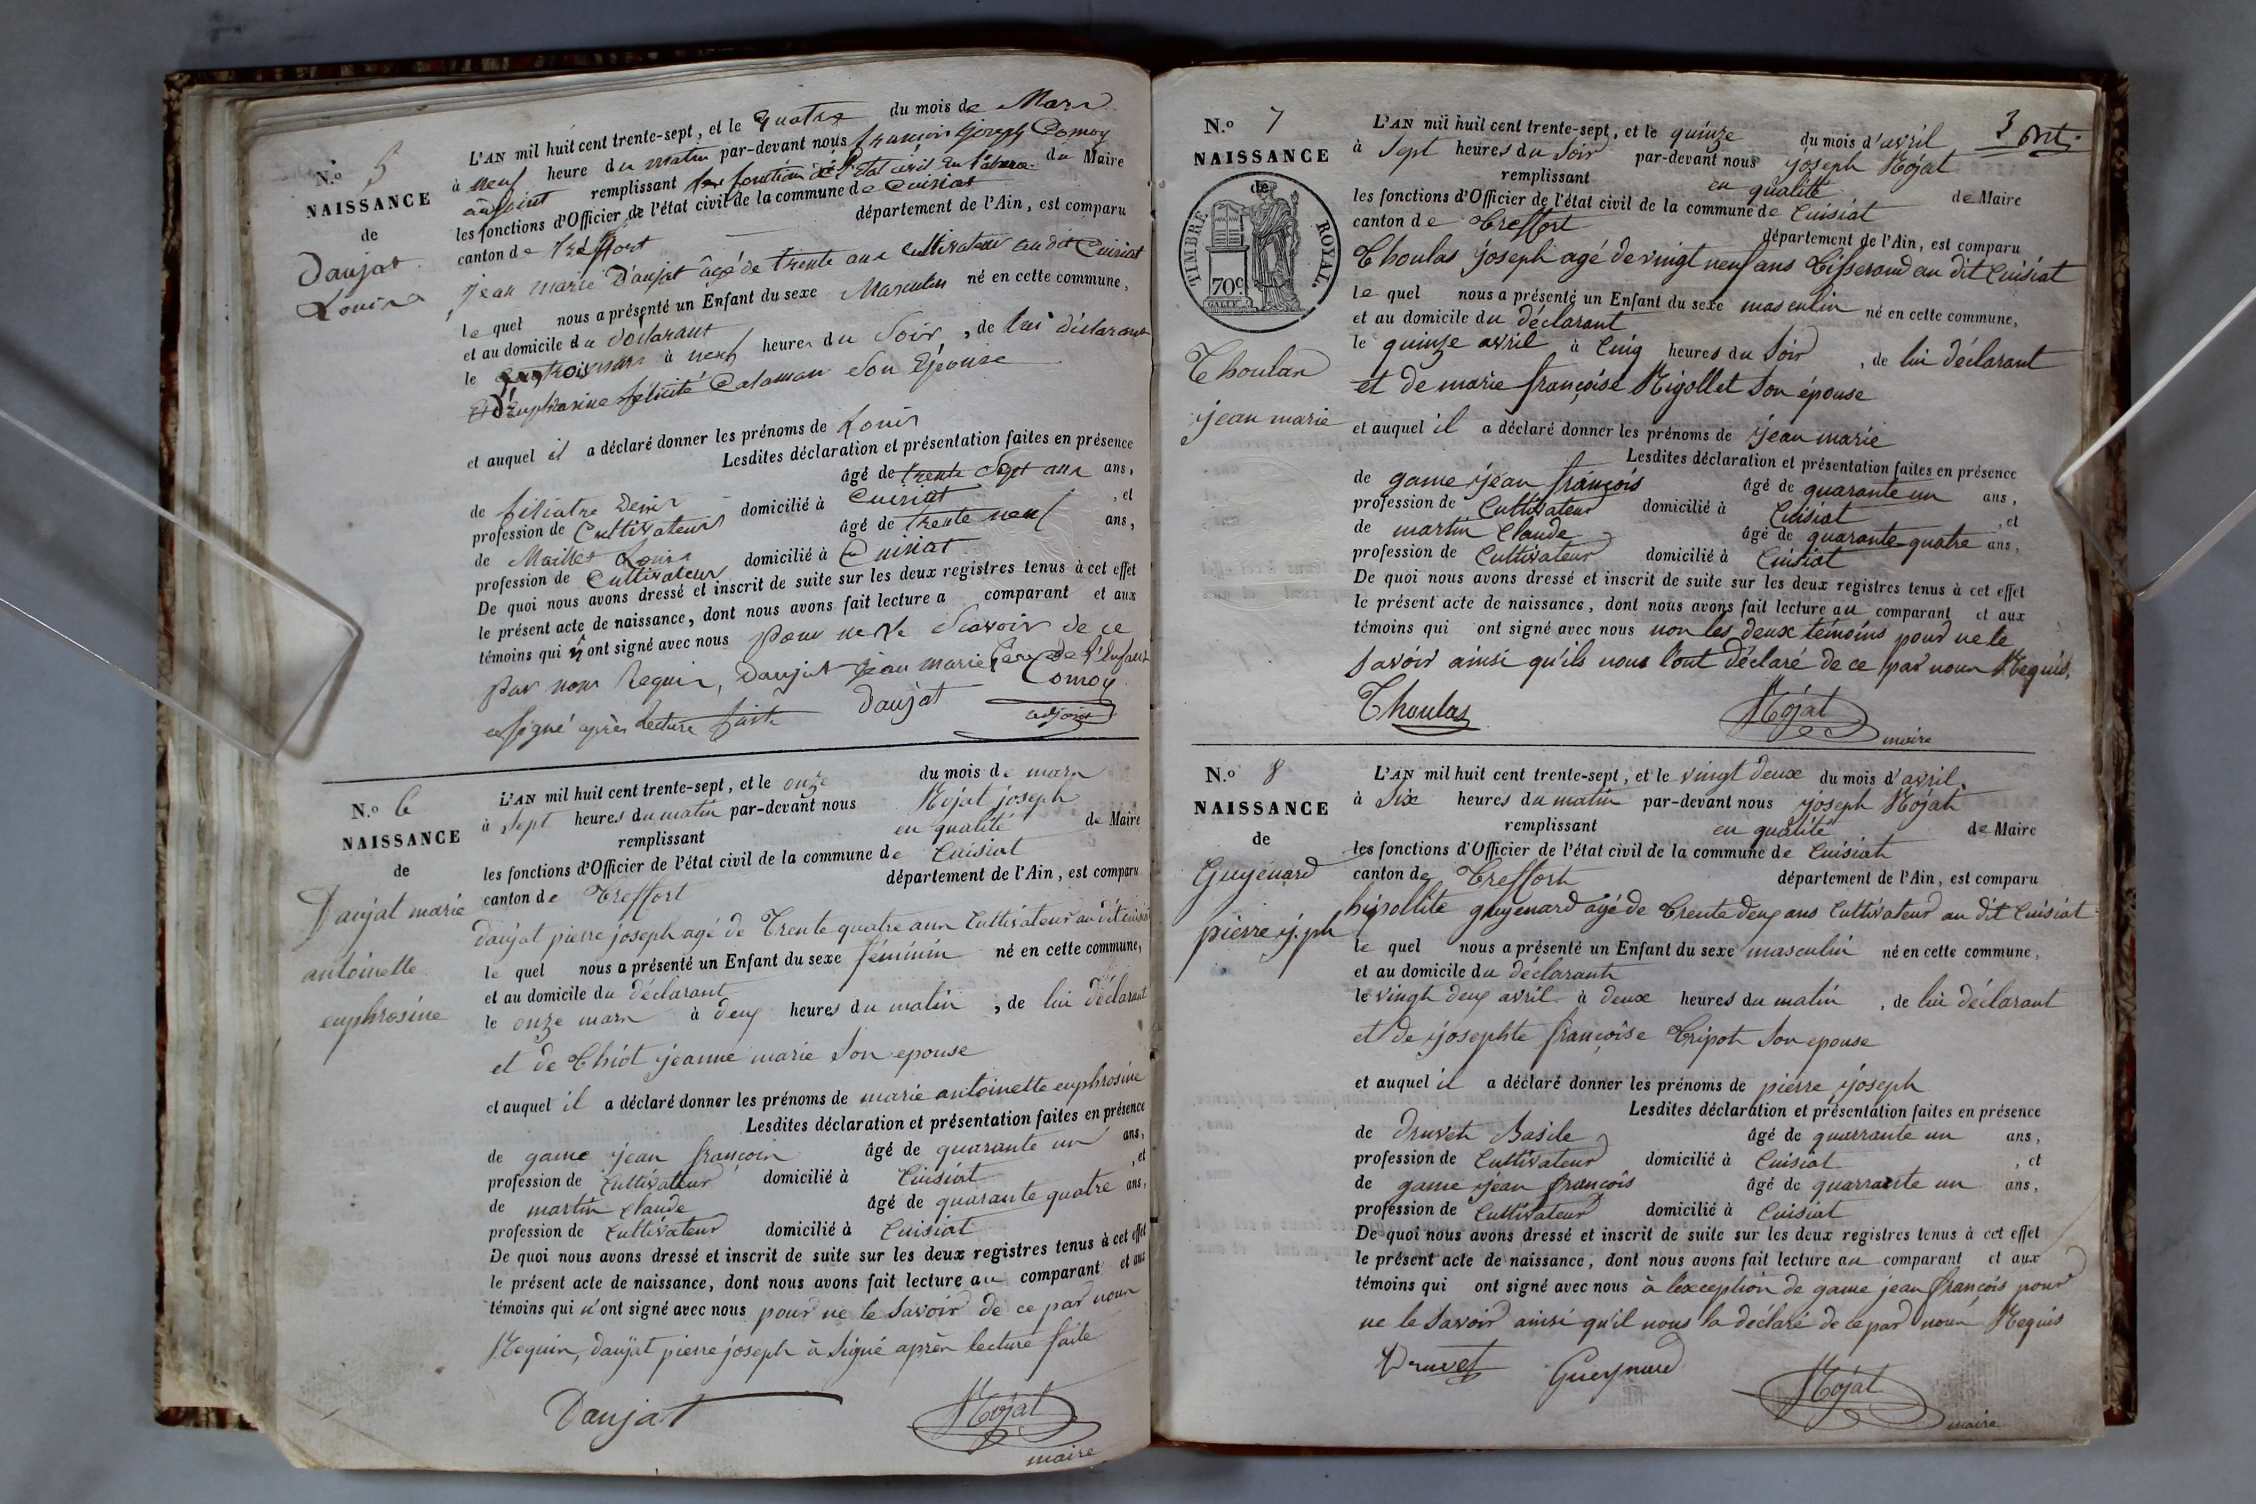 N.º 5
NAISSANCE
de
Daujat
Louis
L'AN mil huit cent trente-sept, et le quatre du mois de Mars
à neuf heure du matin par-devant nous françois joseph Comoy
adjoint remplissant les fonctions de l'état civil en l'absence du Maire
les fonctions d'Officier de l'état civil de la commune de Cuisiat
canton de treffort département de l'Ain, est comparu
jean marie Daujat âgé de trente ans cultivateur au dit Cuisiat
le quel nous a présenté un Enfant du sexe Masculin né en cette commune,
et au domicile du déclarant
le trois mars à neuf heures du Soir, de lui déclarant
Euphrosine félicité Calaman Son Epouse
et auquel il a déclaré donner les prénoms de Louis
Lesdites déclaration et présentation faites en présence
de filiatre Denis âgé de trente Sept ans ans,
profession de Cultivateur domicilié à Cuisiat, et
de Maillet Louis âgé de trente neuf ans,
profession de Cultivateur domicilié à Cuisiat
De quoi nous avons dressé et inscrit de suite sur les deux registres tenus à cet effet
le présent acte de naissance, dont nous avons fait lecture a comparant et aux
témoins qui n'ont signé avec nous pour ne le Scavoir de ce
par nous Requis, Daujat jean marie père de l'enfant
a signé après lecture faite Daujat Comoy
adjoint
N.º 6
NAISSANCE
de
Daujat marie
antoinette
euphrosine
L'AN mil huit cent trente-sept, et le onze du mois de mars
à sept heures du matin par-devant nous Rojat joseph
remplissant en qualité de Maire
les fonctions d'Officier de l'état civil de la commune de Cuisiat
canton de Treffort département de l'Ain, est comparu
Daujat pierre joseph agé de Trente quatre ans Cultivateur au dit cuisiat
le quel nous a présenté un Enfant du sexe féminin né en cette commune,
et au domicile du déclarant
le onze mars à deux heures du matin, de lui déclarant
et de Thiot jeanne marie Son epouse
et auquel il a déclaré donner les prénoms de marie antoinette euphrosine
Lesdites déclaration et présentation faites en présence
de game jean françois âgé de quarante un ans,
profession de Cultivateur domicilié à Cuisiat, et
de martin claude âgé de quarante quatre ans,
profession de Cultivateur domicilié à Cuisiat
De quoi nous avons dressé et inscrit de suite sur les deux registres tenus à cet effet
le présent acte de naissance, dont nous avons fait lecture au comparant et aux
témoins qui n'ont signé avec nous pour ne le Savoir de ce par nous
Requis, daujat pierre joseph à Signé après lecture faite
Daujat Rojat
maire
3
N.º 7
NAISSANCE
de
TIMBRE ROYAL.
70c.
Thoulas
jean marie
L'AN mil huit cent trente-sept, et le quinze du mois d'avril
à Sept heures du Soir par-devant nous joseph Rojat
remplissant en qualité de Maire
les fonctions d'Officier de l'état civil de la commune de Cuisiat
canton de Treffort département de l'Ain, est comparu
Thoulas joseph agé de vingt neuf ans Tisserand au dit Cuisiat
le quel nous a présenté un Enfant du sexe masculin né en cette commune,
et au domicile du déclarant
le quinze avril à Cinq heures du Soir, de lui déclarant
et de marie françoise Rigollet Son épouse
et auquel il a déclaré donner les prénoms de jean marie
Lesdites déclaration et présentation faites en présence
de game jean françois âgé de quarante un ans,
profession de Cultivateur domicilié à Cuisiat, et
de martin Claude âgé de quarante quatre ans,
profession de Cultivateur domicilié à Cuisiat
De quoi nous avons dressé et inscrit de suite sur les deux registres tenus à cet effet
le présent acte de naissance, dont nous avons fait lecture au comparant et aux
témoins qui ont signé avec nous non les deux témoins pour ne le
Savoir ainsi qu'ils nous l'ont déclaré de ce par nous Requis,
Thoulas Rojat
maire
N.º 8
NAISSANCE
de
Guyenard
pierre j.ph
L'AN mil huit cent trente-sept, et le vingt deux du mois d'avril
à Six heures du matin par-devant nous joseph Rojat
remplissant en qualité de Maire
les fonctions d'Officier de l'état civil de la commune de Cuisiat
canton de Treffort département de l'Ain, est comparu
hipollite guyenard agé de trente deux ans Cultivateur au dit Cuisiat
le quel nous a présenté un Enfant du sexe masculin né en cette commune,
et au domicile du déclarant
le vingt deux avril à deux heures du matin, de lui déclarant
et de josephte françoise Tripot Son epouse
et auquel il a déclaré donner les prénoms de pierre joseph
Lesdites déclaration et présentation faites en présence
de druvet Basile âgé de quarrante un ans,
profession de Cultivateur domicilié à Cuisiat, et
de game jean françois âgé de quarrante un ans,
profession de Cultivateur domicilié à Cuisiat
De quoi nous avons dressé et inscrit de suite sur les deux registres tenus à cet effet
le présent acte de naissance, dont nous avons fait lecture au comparant et aux
témoins qui ont signé avec nous à l'exception de game jean françois pour
ne le Savoir ainsi qu'il nous la déclaré de ce par nous Requis
Druvet Gueynard Rojat
maire